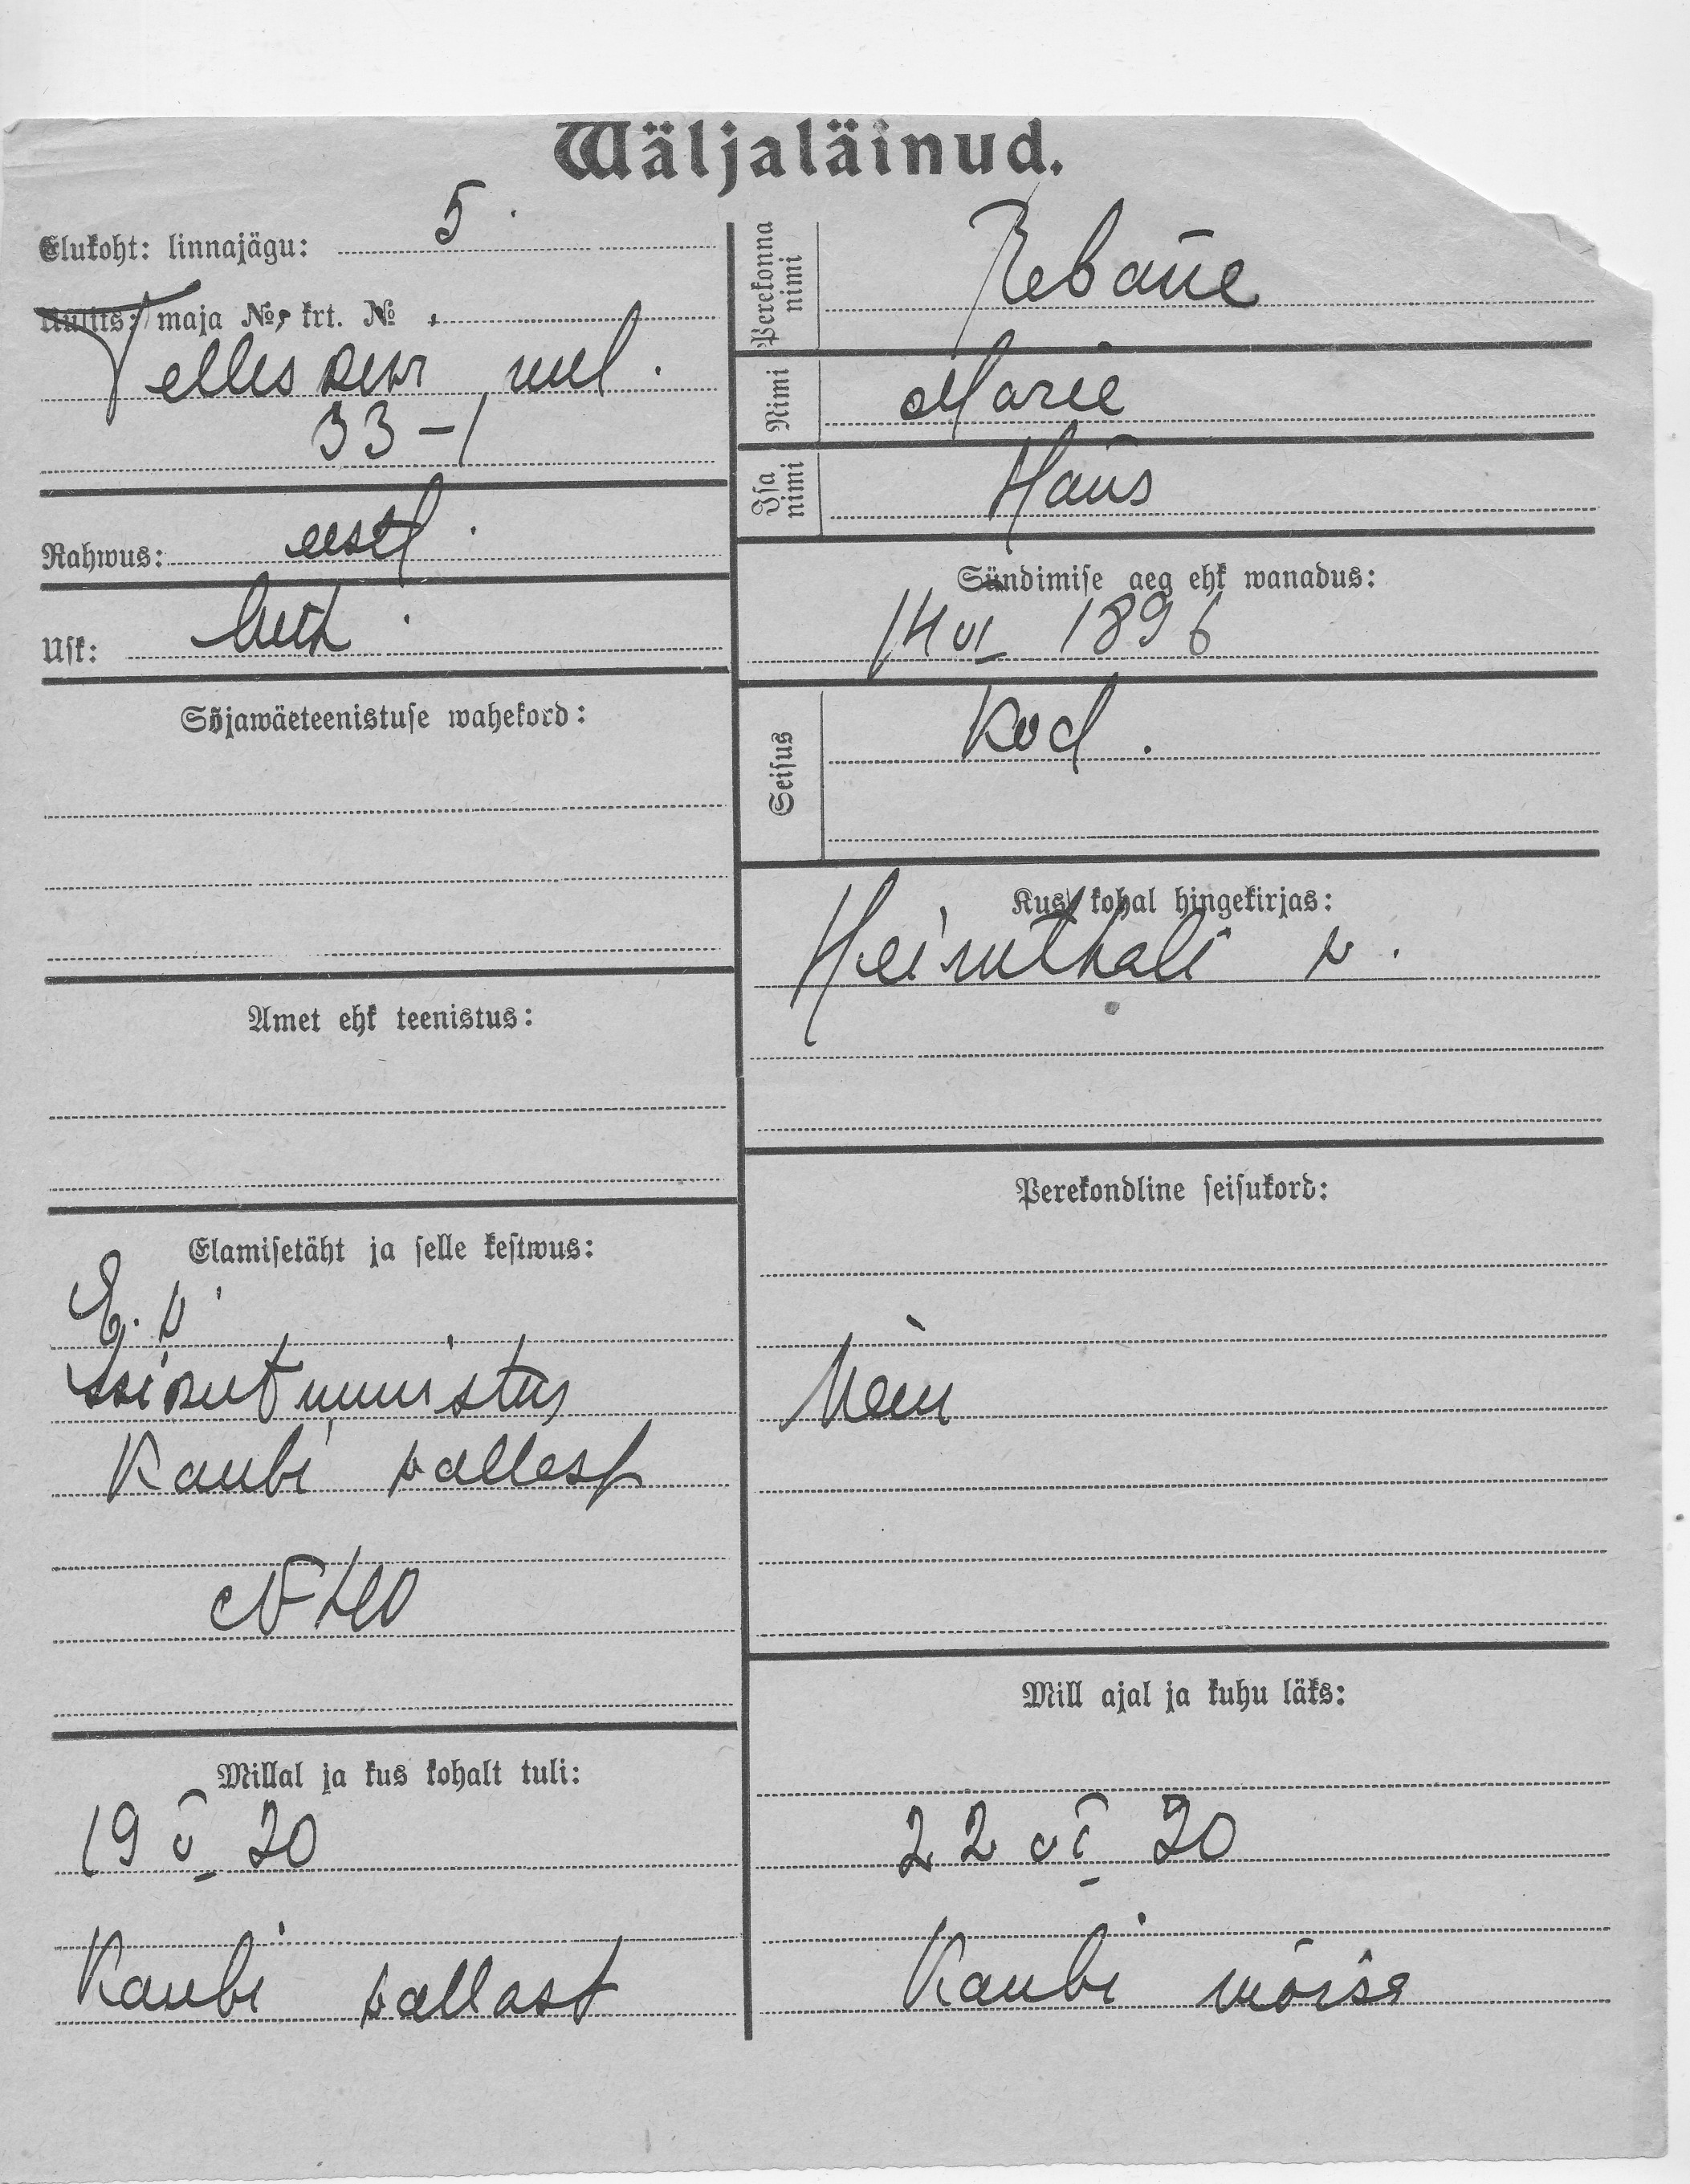 Wäljaläinud.
Elukoht: linnajägu: 5.
Uulits: maja №, krt. №
33-1
Rahwus: eestl.
Usk: luth.
Sõjawäeteenistuse wahekord:
Amet ehk teenistus:
Elamisetäht ja selle kestwus:
E. w
Isikut
Kaubi wallast
№ 420
Millal ja kus kohalt tuli:
19 V 20
Kaubi wallast
Perekonna nimi
Rebane
Nimi
Marie
Isa nimi
Hans
Sündimise aeg ehk wanadus:
14 VI 1896
Seisus
kod.
Kus kohal hingekirjas:
Heimthali w.
Perekondline seisukord:
Mill ajal ja kuhu läks:
22 VI 20
Kaubi mõisa